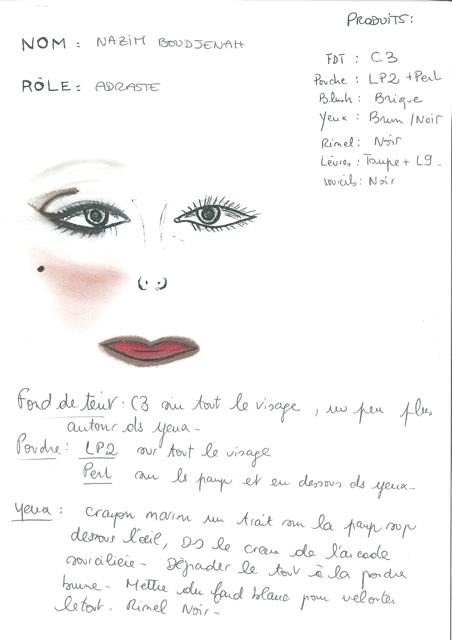 PRODUITS:
NOM : NAZIM BOUDJENAH
RÔLE : ADRASTE
FDT : C3
Poudre : LP2 + Perl
Blush : Brique
Yeux : Brun / Noir
Rimel : Noir
Lèvres : Taupe + L9.
sourcils : Noir
Fond de teint : C3 sur tout le visage, un peu plus
autour ds yeux.
Poudre : LP2 sur tout le visage
Perl sur la paup et en dessous ds yeux.
Yeux : Crayon marron un trait sur la paup sup
dessous l'œil, Ds le creux de l'arcade
sourcilière. Dégrader le tout à la poudre
brune. Mettre du fard blanc pour velouter
le tout. Rimel Noir.